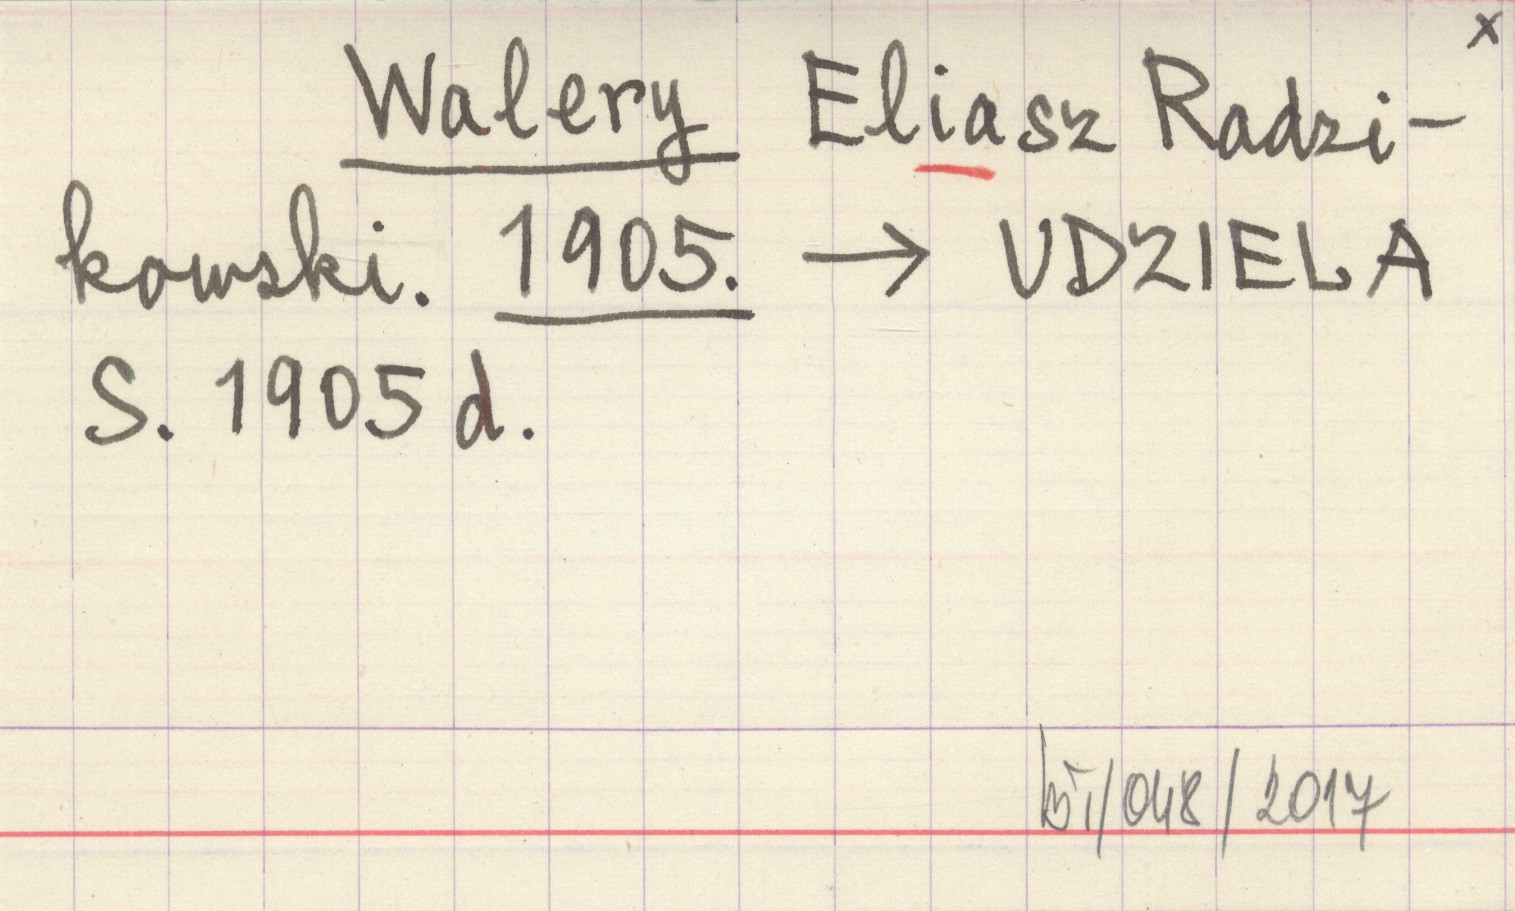 x
Walery Eliasz Radzi-
kowski. 1905. → UDZIELA
S. 1905 d.
/048/2017